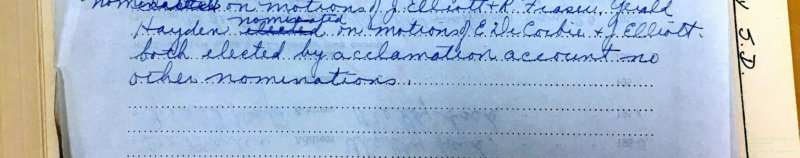 nominated on motions of J. Elliott & R. Fraser, Gerald
Hayden elected nominated on motions of E. De Corbie & J. Elliott.
both elected by acclamation account no
other nominations.
S.D.